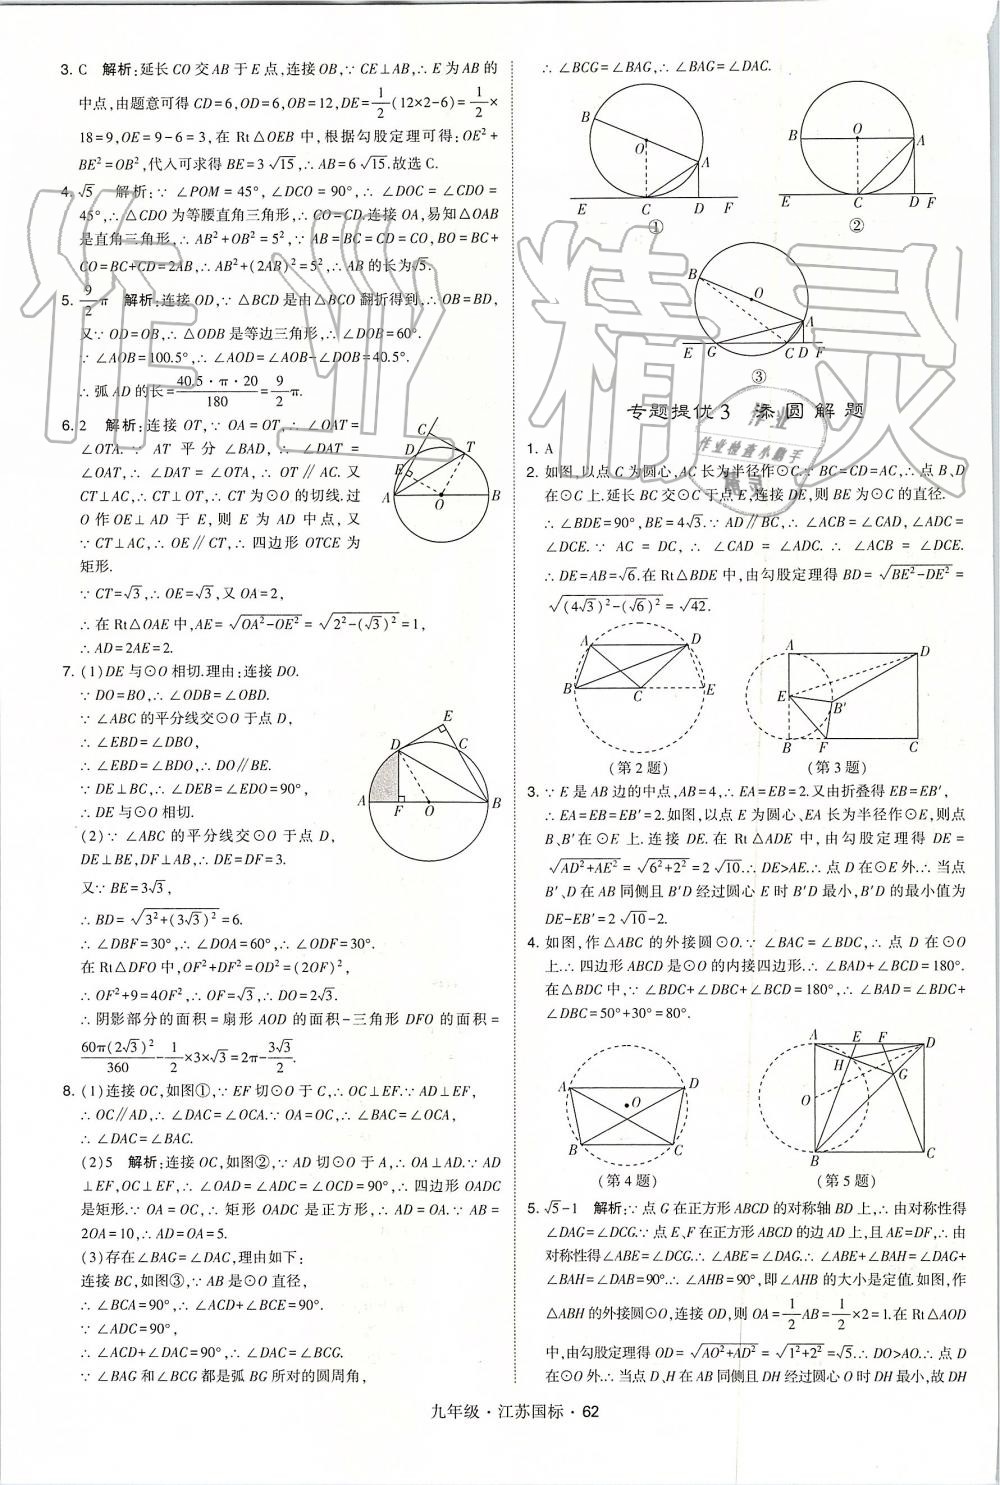 3. C 解析:延长CO交AB于E点,连接OB,∵CE⊥AB,∴E为AB的
中点,由题意可得CD=6,OD=6,OB=12,DE=1/2(12×2-6)=1/2×
18=9,OE=9-6=3,在Rt△OEB中,根据勾股定理可得:OE²+
BE²=OB²,代入可求得BE=3√15,∴AB=6√15.故选C.
4. √5 解析:∵∠POM=45°,∠DCO=90°,∴∠DOC=∠CDO=
45°,∴△CDO为等腰直角三角形,∴CO=CD.连接OA,易知△OAB
是直角三角形,∴AB²+OB²=5²,∵AB=BC=CD=CO,BO=BC+
CO=BC+CD=2AB,∴AB²+(2AB)²=5²,∴AB的长为√5.
5. 9/2π 解析:连接OD,∵△BCD是由△BCO翻折得到,∴OB=BD,
又∵OD=OB,∴△ODB是等边三角形,∴∠DOB=60°.
∵∠AOB=100.5°,∴∠AOD=∠AOB-∠DOB=40.5°.
∴弧AD的长=40.5·π·20/180=9/2π.
6. 2 解析:连接OT,∵OA=OT,∴∠OAT=
∠OTA.∵AT平分∠BAD,∴∠DAT=
∠OAT,∴∠DAT=∠OTA,∴OT∥AC.又
CT⊥AC,∴CT⊥OT,∴CT为⊙O的切线.过
O作OE⊥AD于E,则E为AD中点,又
∵CT⊥AC,∴OE∥CT,∴四边形OTCE为
矩形.
∵CT=√3,∴OE=√3,又OA=2,
∴在Rt△OAE中,AE=√(OA²-OE²)=√(2²-(√3)²)=1,
∴AD=2AE=2.
C
D T
E
A O B
7. (1)DE与⊙O相切.理由:连接DO.
∵DO=BO,∴∠ODB=∠OBD.
∵∠ABC的平分线交⊙O于点D,
∴∠EBD=∠DBO,
∴∠EBD=∠BDO,∴DO∥BE.
∵DE⊥BC,∴∠DEB=∠EDO=90°,
∴DE与⊙O相切.
(2)∵∠ABC的平分线交⊙O于点D,
DE⊥BE,DF⊥AB,∴DE=DF=3.
又∵BE=3√3,
∴BD=√(3²+(3√3)²)=6.
∴∠DBF=30°,∴∠DOA=60°,∴∠ODF=30°.
在Rt△DFO中,OF²+DF²=OD²=(2OF)²,
∴OF²+9=4OF²,∴OF=√3,∴DO=2√3.
∴阴影部分的面积=扇形AOD的面积-三角形DFO的面积=
60π(2√3)²/360-1/2×3×√3=2π-3√3/2.
E
D C
A F O B
8. (1)连接OC,如图①,∵EF切⊙O于C,∴OC⊥EF.∵AD⊥EF,
∴OC∥AD,∴∠DAC=∠OCA.∵OA=OC,∴∠BAC=∠OCA,
∴∠DAC=∠BAC.
(2)5 解析:连接OC,如图②,∵AD切⊙O于A,∴OA⊥AD.∵AD
⊥EF,OC⊥EF,∴∠OAD=∠ADC=∠OCD=90°,∴四边形OADC
是矩形.∵OA=OC,∴矩形OADC是正方形,∴AD=OA.∵AB=
2OA=10,∴AD=OA=5.
(3)存在∠BAG=∠DAC,理由如下:
连接BC,如图③,∵AB是⊙O直径,
∴∠BCA=90°,∴∠ACD+∠BCE=90°.
∵∠ADC=90°,
∴∠ACD+∠DAC=90°,∴∠DAC=∠BCG.
∵∠BAG和∠BCG都是弧BG所对的圆周角,
∴∠BCG=∠BAG,∴∠BAG=∠DAC.
B O A
E C D F
①
B O A
E C D F
②
B O A
E G C D F
③
专题提优3 添圆解题
1. A
2. 如图,以点C为圆心,AC长为半径作⊙C.∵BC=CD=AC,∴点B、D
在⊙C上.延长BC交⊙C于点E,连接DE,则BE为⊙C的直径.
∴∠BDE=90°,BE=4√3.∵AD∥BC,∴∠ACB=∠CAD,∠ADC=
∠DCE.∵AC=DC,∴∠CAD=∠ADC.∴∠ACB=∠DCE.
∴DE=AB=√6.在Rt△BDE中,由勾股定理得BD=√(BE²-DE²)=
√((4√3)²-(√6)²)=√42.
A D
B C E
(第2题)
A D
E B′
B F C
(第3题)
3. ∵E是AB边的中点,AB=4,∴EA=EB=2.又由折叠得EB=EB′,
∴EA=EB=EB′=2.如图,以点E为圆心、EA长为半径作⊙E,则点
B、B′在⊙E上.连接DE.在Rt△ADE中,由勾股定理得DE=
√(AD²+AE²)=√(6²+2²)=2√10.∴DE>AE.∴点D在⊙E外.∴当点
B′、D在AB同侧且B′D经过圆心E时B′D最小,B′D的最小值为
DE-EB′=2√10-2.
4. 如图,作△ABC的外接圆⊙O.∵∠BAC=∠BDC,∴点D在⊙O
上.∴四边形ABCD是⊙O的内接四边形.∴∠BAD+∠BCD=180°.
在△BDC中,∵∠BDC+∠DBC+∠BCD=180°,∴∠BAD=∠BDC+
∠DBC=50°+30°=80°.
A D
O
B C
(第4题)
A E F D
H G
O
B C
(第5题)
5. √5-1 解析:∵点G在正方形ABCD的对称轴BD上,∴由对称性得
∠DAG=∠DCG.∵点E、F在正方形ABCD的边AD上,且AE=DF,∴由
对称性得∠ABE=∠DCG.∴∠ABE=∠DAG.∴∠ABE+∠BAH=∠DAG+
∠BAH=∠DAB=90°.∴∠AHB=90°,即∠AHB的大小是定值.如图,作
△ABH的外接圆⊙O,连接OD,则OA=1/2AB=1/2×2=1.在Rt△AOD
中,由勾股定理得OD=√(AO²+AD²)=√(1²+2²)=√5.∴DO>AO.∴点D
在⊙O外.∴当点D、H在AB同侧且DH经过圆心O时DH最小,故DH
九年级·江苏国标·62
作业精灵
作业
作业检查小助手
精灵